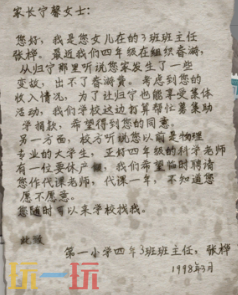 家长宁馨女士:
您好,我是您女儿在的3班班主任
张桦。最近我们四年级在组织春游,
从归宁那里听说您家发生了一些
变故,出不了春游费。考虑到您的
收入情况,为了让归宁也能享受集体
活动,我们学校这边打算帮忙募集助
学捐款,希望得到您的同意。
另一方面,校方听说您以前是物理
专业的大学生,正好四年级的科学老师
有一位要休产,我们希望临时聘请
您作代课老师,代课一年,不知道您
愿不愿意。
您随时可以来学校找我。
此致
第一小学四年3班班主任:张桦
1998年3月
玩一玩